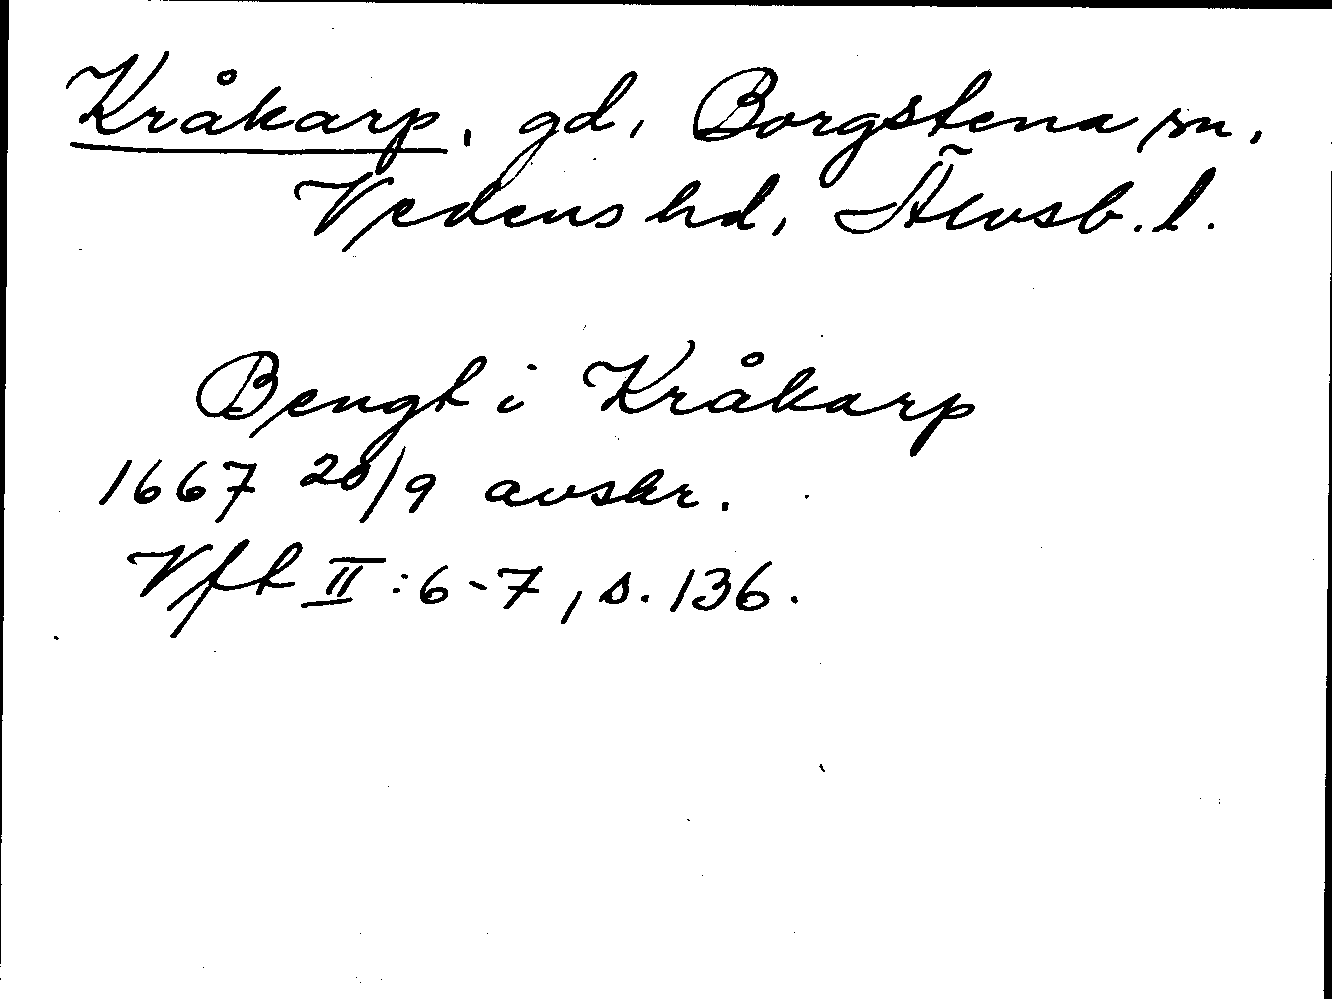 Kråkarp, gd, Borgstena sn,
Vedens hd, Älvsb. l.
Bengt i Kråkarp
1667 20/9 avskr.
Vft II:6-7, s. 136.